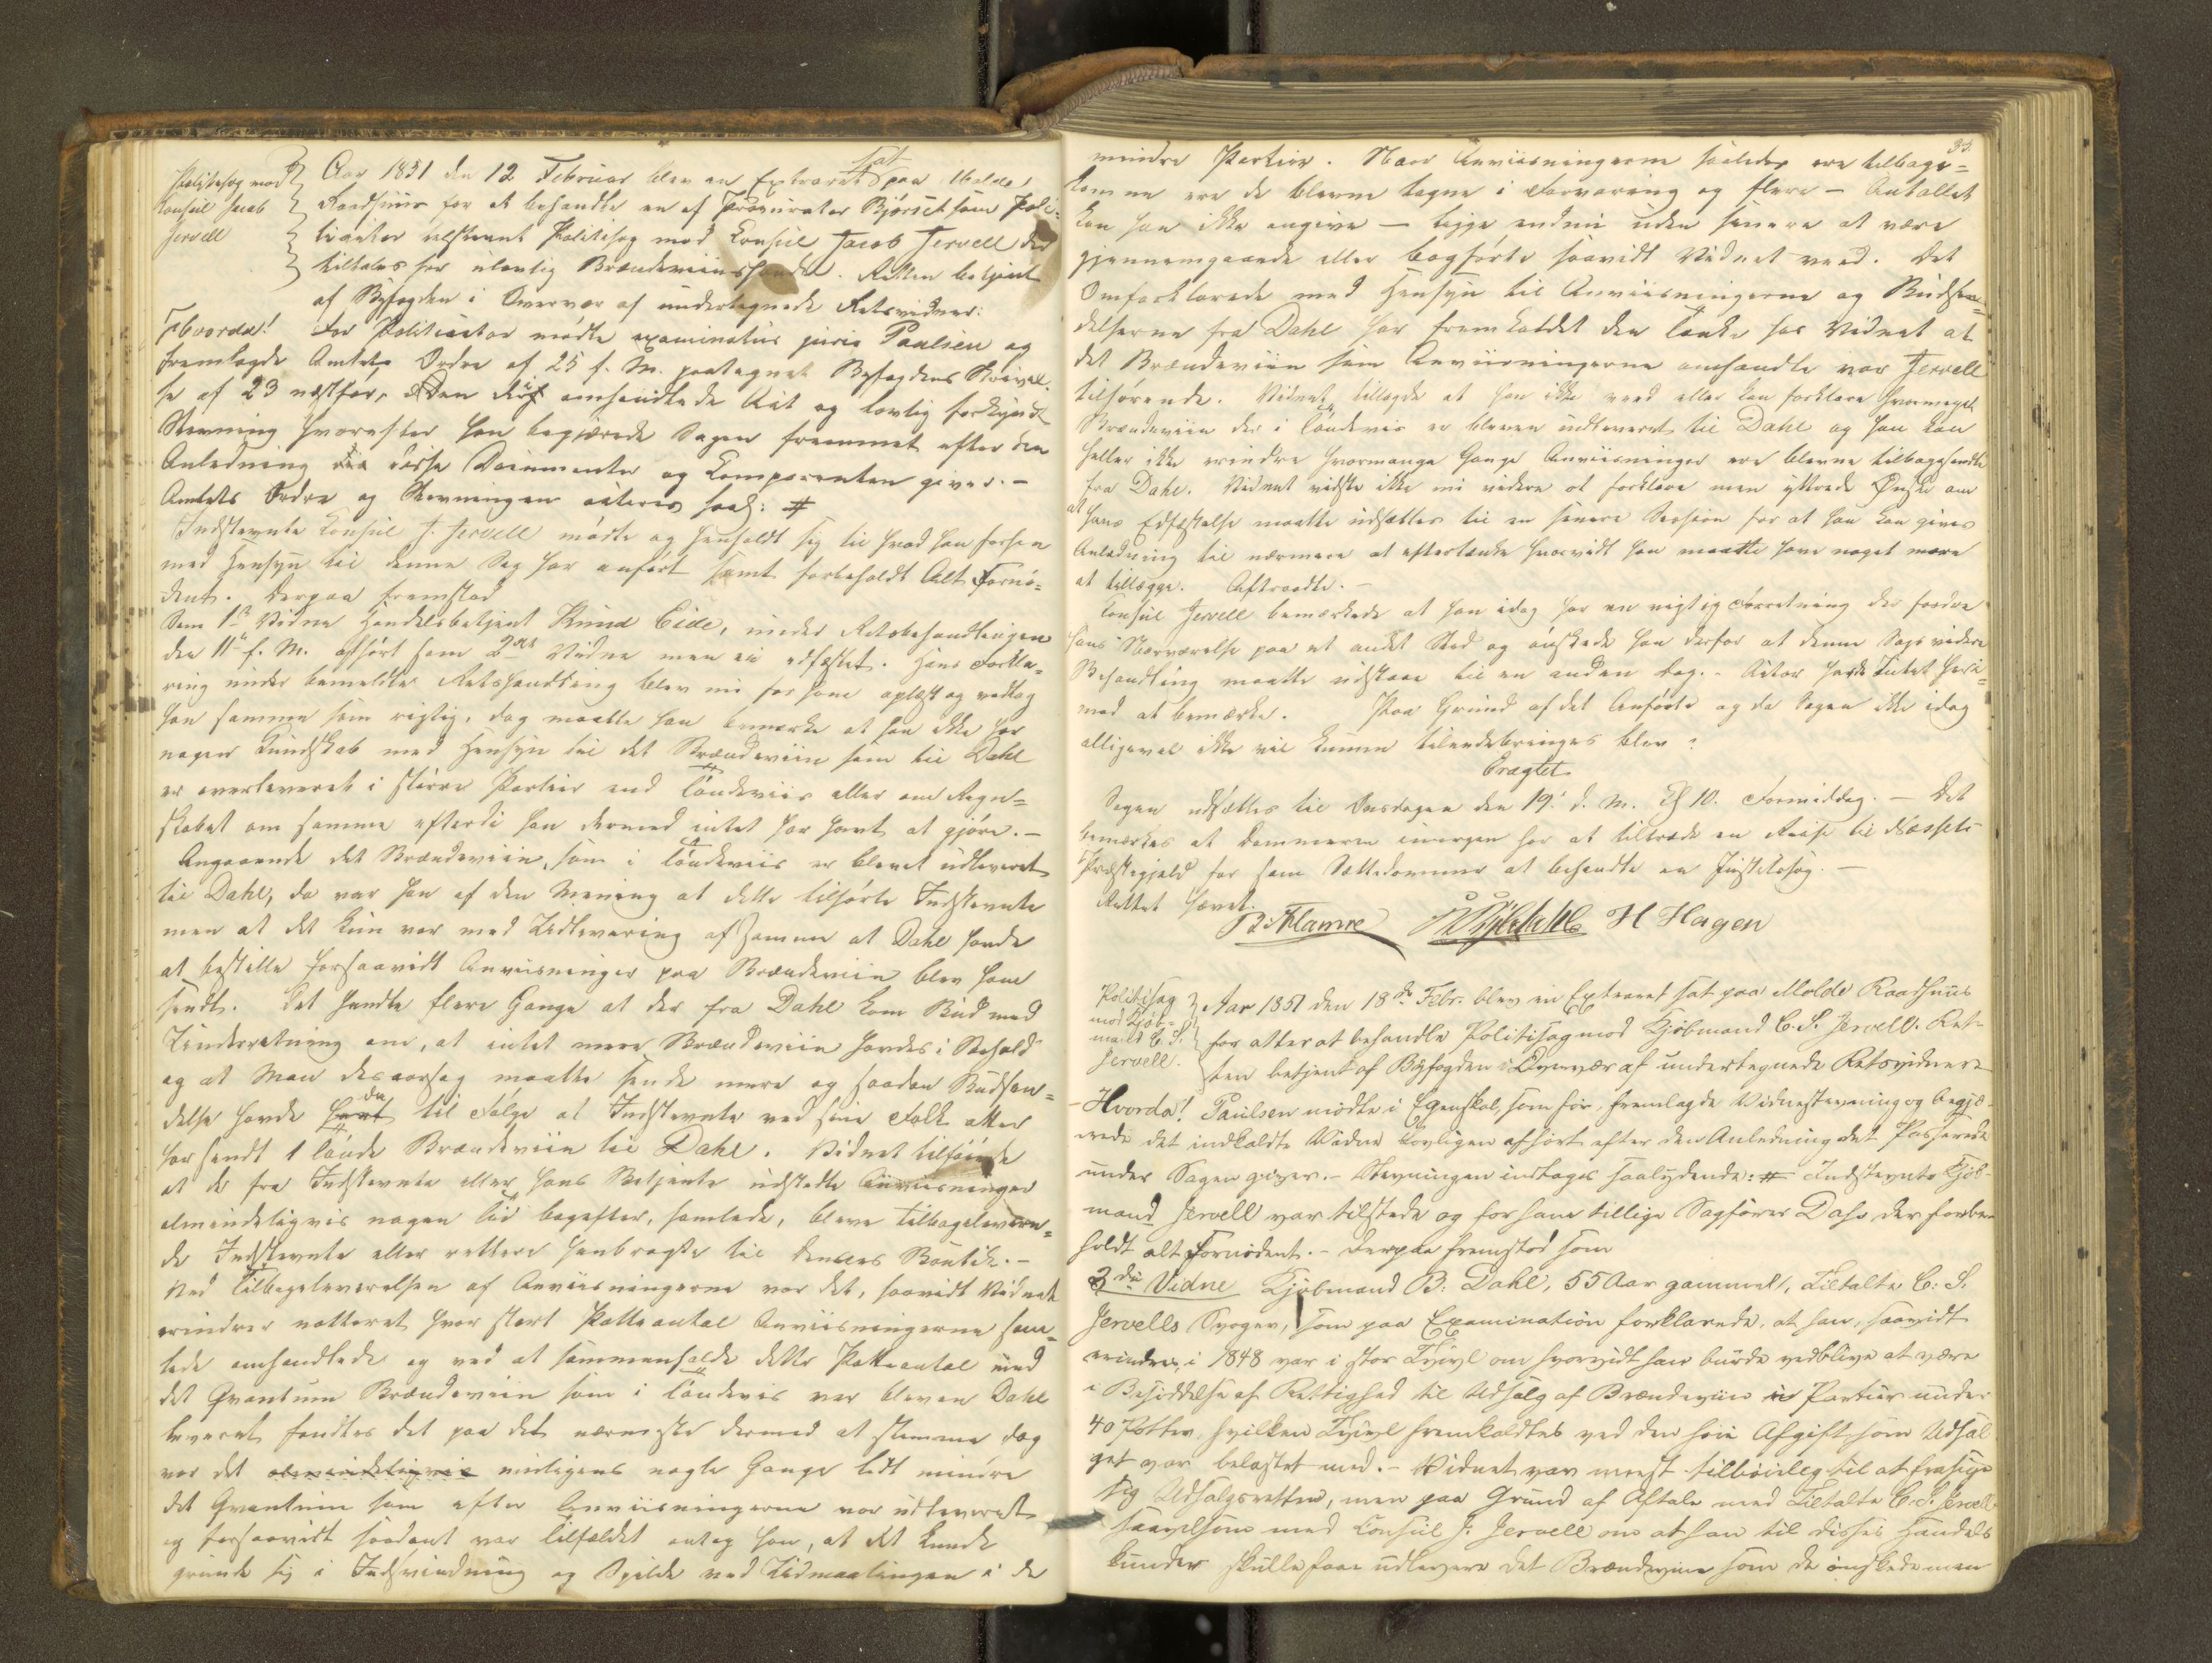 Politisag mod
Consul Jacob
Jervell
Aar 1851 den 12 Februar blev en Extraret sat paa Molde
Raadhuus for at behandle en af Procurator Bjørset som Poli-
tiactor reist Politisag mod Consul Jacob Jervell der
tiltales for ulovlig Brændeviinshandel. Retten betjent
af Byfogden i Overvær af undertegnede Retsvidner:
Hvorda! For Politiactor mødte examinatus juris Paulsen og
fremlagde Amtets Ordre af 25 f. M. paategnet Byfogdens Skrivel-
se af 23 næstfør, den deri omhandlede Act og lovlig forkyndt
Stevning hvorefter han begjærede Sagen fremmet efter den
Anledning disse Documenter og Comparenten giver. -
Amtets Ordre og Stevningen acteres saal: #
Indstevnte Consul J. Jervell mødte og henholdt sig til hvad han forhen
med Hensyn til denne Sag har anført samt forbeholdt Alt Fornø-
dent. Derpaa fremstod
Som 1ste Vidne Handelsbetjent Knud Eide, under Retsbehandlingen
den 11te f. M. afhørt som 2det Vidne men ei edfæstet. Hans Forkla-
ring under bemeldte Retshandling blev nu for ham oplæst og vedtog
han samme som rigtig, dog maatte han bemærke at han ikke har
nogen Kundskab med Hensyn til det Brændeviin som til Dahl
er overleveret i større Partier end Töndeviis eller om Regn-
skabet om samme efterdi han dermed intet har havt at gjøre. -
Angaaende det Brændeviin, som i Töndeviis er blevet udleveret
til Dahl, da var han af den Mening at dette tilhørte Indstevnte
men at det kun var med Udlevering af samme at Dahl havde
at bestille forsaavidt Anviisninger paa Brændeviin blev ham
sendt. Det hændte flere Gange at der fra Dahl kom Bud med
Underretning om, at intet mere Brændeviin havdes i Behold
og at Man desaarsag maatte sende mere og saadan Budsen-
delse havde da til Følge at Indstevnte ved sine Folk atter
har sendt 1 Tönde Brændeviin til Dahl. Vidnet tilføiede
at de fra Indstevnte eller hans Betjente udstedte Anviisninger
almindeligvis nogen Tid bagefter, samlede, bleve tilbageleverede
de Indstevnte eller rettere henbragte til dennes Boutik. -
Ved Tilbageleverelsen af Anviisningerne var det, saavidt Vidnet
erindrer noteret hvor stort Potteantal Anviisningerne sam-
lede omhandlede og ved at sammenholde dette Potteantal med
det Qvantum Brændeviin som i Töndevis var bleven Dahl
leveret fandtes det paa det nærmeste dermed at stemme dog
var det almindeligvis muligens nogle Gange lidt mindre
det Qvantum som efter Anviisningerne var udleveret
og forsaavidt saadant var Tilfældet antog han, at det kunde
grunde sig i Indsvinding og Spilde ved Udmaalingen i de
33.
mindre Partier. Naar Anviisningerne saaledes ere tilbage-
komne ere de blevne tagne i Forvaring og flere - Antallet
kan han ikke angive - ligge endnu uden senere at være
gjennemgaaede eller bogførte saavidt Vidnet veed. Det
Omforklarede med Hensyn til Anviisningerne og Budsen-
delserne fra Dahl har fremkaldet den Tanke hos Vidnet at
det Brændeviin som Anviisningerne omhandle var Jervell
tilhørende. Vidnet tillagde at han ikke veed eller kan forklare hvormeget
Brændeviin der i Töndevis er bleven udleveret til Dahl og han kan
heller ikke erindre hvormange Gange Anviisninger ere blevne tilbagesendte
fra Dahl. Vidnet vidste ikke nu videre at forklare men yttrede Ønske om
at hans Edfæstelse maatte udsættes til en senere Session for at han kan gives
Anledning til nærmere at eftertænke hvorvidt han maatte have noget mere
at tillægge. Aftraadte. -
Consul Jervell bemærkede at han idag har en vigtig Forretning der fordrer
hans Nærværelse paa et andet Sted og ønskede han derfor at denne Sags videre
Behandling maatte udstaae til en anden Dag. - Actor havde Intet heri-
mod at bemærke. Paa Grund af det Anførte og da Sagen ikke idag
alligevel ikke vil kunne tilendebringes blev:
Eragtet
Sagen udsættes til Onsdagen den 19. d. M. Kl 10. Formiddag. - Det
bemærkes at Dommeren imorgen har at tiltræde en Reise til Næssets
Præstegjeld for som Sættedommer at behandle en Justitssag. -
Retten hævet.
H Hagen
Politisag
mod Kjøb-
mand C. S.
Jervell.
Aar 1851 den 18de Febr. blev en Extraret sat paa Molde Raadhuus
for atter at behandle Politisag mod Kjøbmand C. S. Jervell. Ret-
ten betjent af Byfogden i Overvær af undertegnede Retsvidner
- Hvorda! Paulsen mødte i Egenskab, som før, fremlagde Vidnestevning og begjæ-
rede det indkaldte Vidne lovligen afhørt efter den Anledning det Passerede
under Sagen giver. - Stevningen indtages saalydende: # Indstevnte Kjøb-
mand Jervell var tilstede og for ham tillige Sagfører Dahl der forbe-
holdt alt Fornødent. - Derpaa fremstod som
3die Vidne Kjøbmand B. Dahl, 55 Aar gammel, Tiltalte C. S.
Jervells Svoger, som paa Examination forklarede, at han, saavidt
erindres i 1848 var i stor Tvivl om hvorvidt han burde vedblive at være
i Besiddelse af Rettighed til Udsalg af Brændeviin i Partier under
40 Potter, hvilken Tvivl fremkaldtes ved den høie Afgift som Udsal
get var belastet med. - Vidnet var meest tilbøielig til at frasige
sig Udsalgsretten, men paa Grund af Aftale med Tiltalte C. S. Jervell
saavelsom med Consul J. Jervell om at han til disses Handels
kunder skulle faae udlevere det Brændeviin som de ønskede men